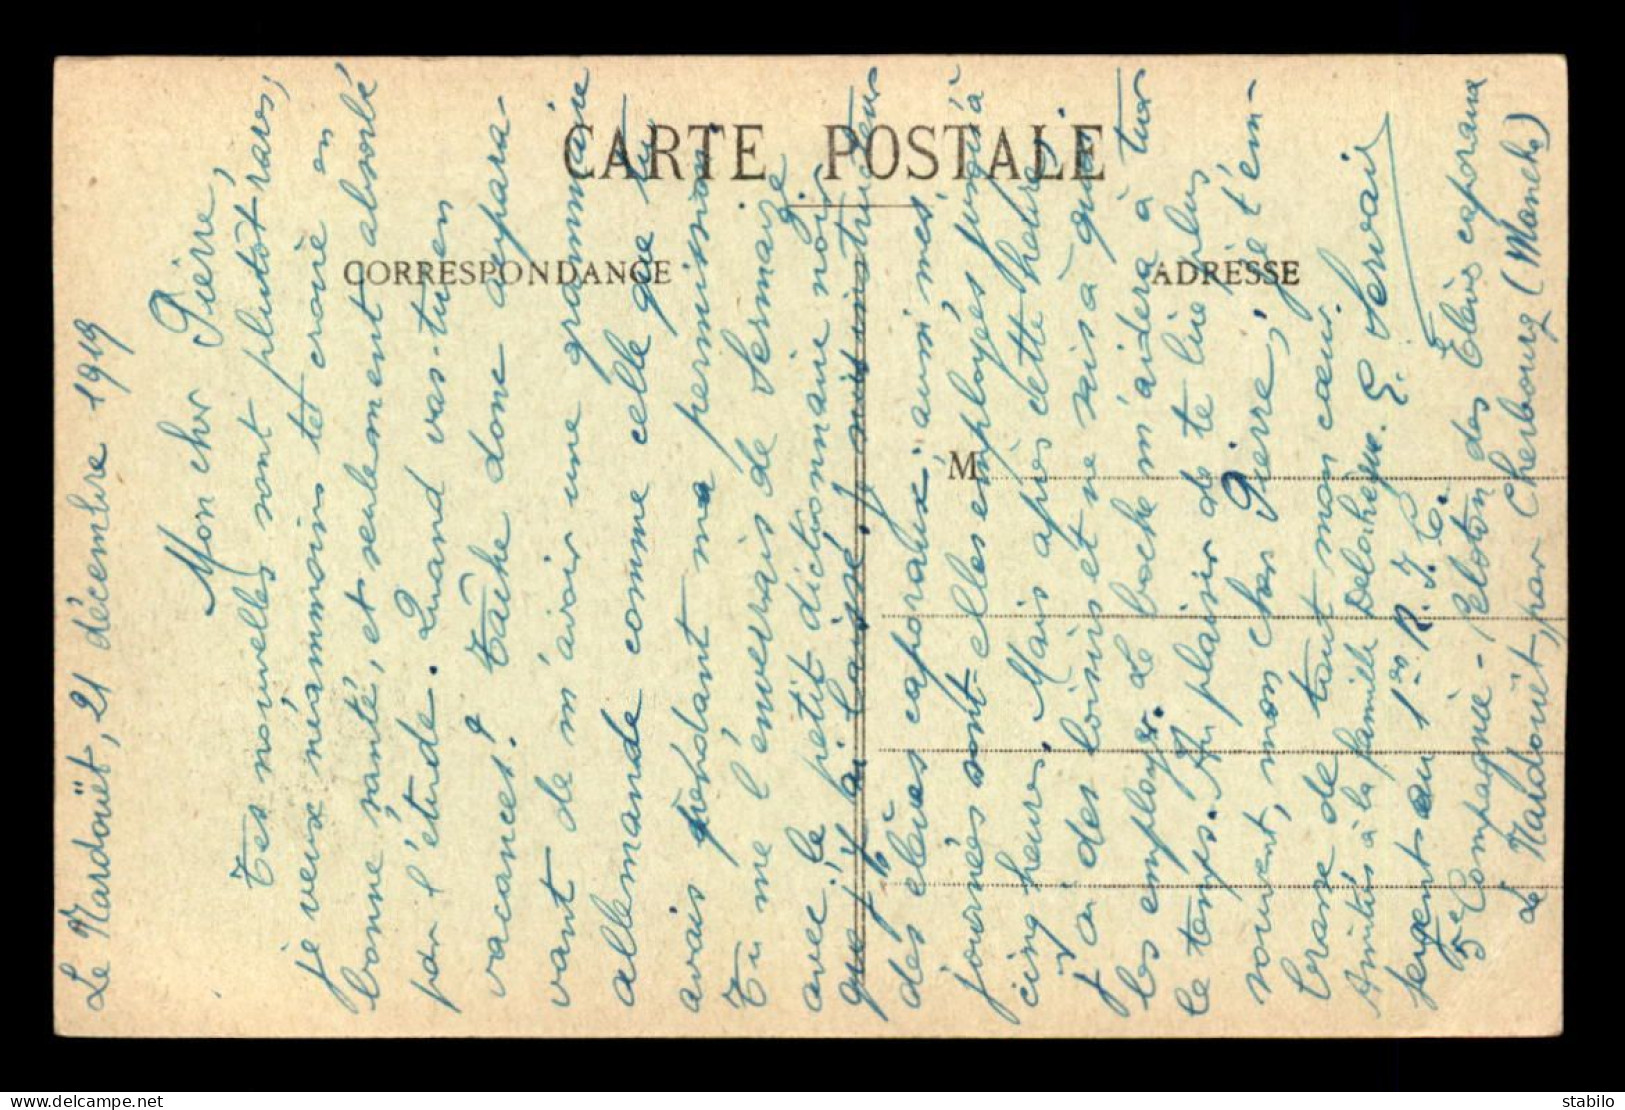 CARTE POSTALE
CORRESPONDANCE
ADRESSE
M
Le Nardouët, 21 décembre 1919
Mon cher Pierre,
Tes nouvelles sont plutôt rares,
je veux néammoins te croire en
bonne santé, et seulement absorbé
par l'étude. Quand vas-tu en
vacances? Tâche donc avpara-
vant de m'avoir une grammaire
allemande comme celle que tu
avais pendant ma permission.
Tu me l'enverrais de Sermaize
avec le petit dictionnaire noir
que j'y ai laissé. Je suis instructeur
des élèves caporaux: aussi mes
journées sont-elles employées jusqu'à
cinq heures. Mais après cette heure,
j'ai des loisirs et ne sais à quoi
les employer. Le boche m'aidera à tuer
le temps. Au plaisir de te lire plus
souvent, mon cher Pierre, je t'em-
brasse de tout mon cœur.
Amitiés à la famille Delahaye. G. Servais
sergent au 1er R. I. C.
5e Compagnie - Peloton des Elèves caporaux
Le Nardouët, par Cherbourg (Manche)
stabilo
https://www.delcampe.net